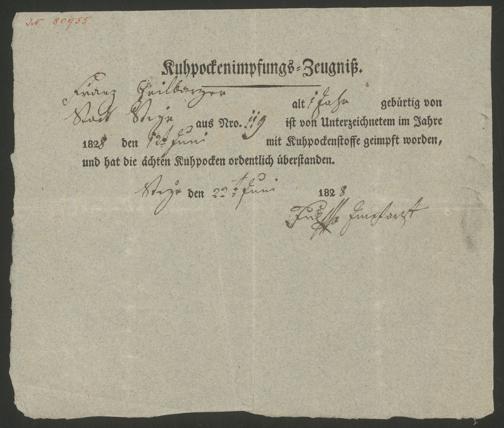 80955
Kuhpockenimpfungs-Zeugniß.
Franz
alt 1 Jahr gebürtig von
Stadt Steyr aus Nro. 119 ist von Unterzeichnetem im Jahre
1828 den Juni mit Kuhpockenstoffe geimpft worden,
und hat die ächten Kuhpocken ordentlich überstanden.
Steyr den 22 Juni 1828
Impfarzt